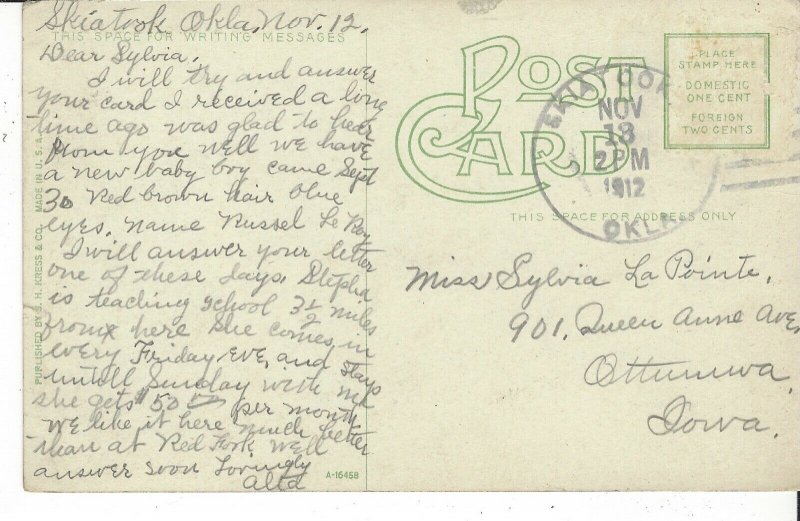 Skiatook Okla, Nov. 12.
THIS SPACE FOR WRITING MESSAGES
Dear Sylvia,
I will try and answer
your card I received a long
time ago was glad to hear
from you well we have
a new baby boy came Sept
30 Red brown hair blue
eyes. name Russel Le Roy
I will answer your letter
one of these days.
is teaching school 3 1/2 miles
from here she comes in
every Friday eve, and stays
untill Sunday with me
she gets $50 00 per month
we like it here much better
than at Red Fork well
answer soon Lovingly
Alta
PUBLISHED BY S. H. KRESS & CO. MADE IN U. S. A.
A-16458
POST
CARD
SKIATOOK
NOV
13
2 PM
1912
OKLA.
PLACE
STAMP HERE
DOMESTIC
ONE CENT
FOREIGN
TWO CENTS
THIS SPACE FOR ADDRESS ONLY
Miss Sylvia La Pointe,
901, Queen Anne Ave,
Ottumwa,
Iowa.